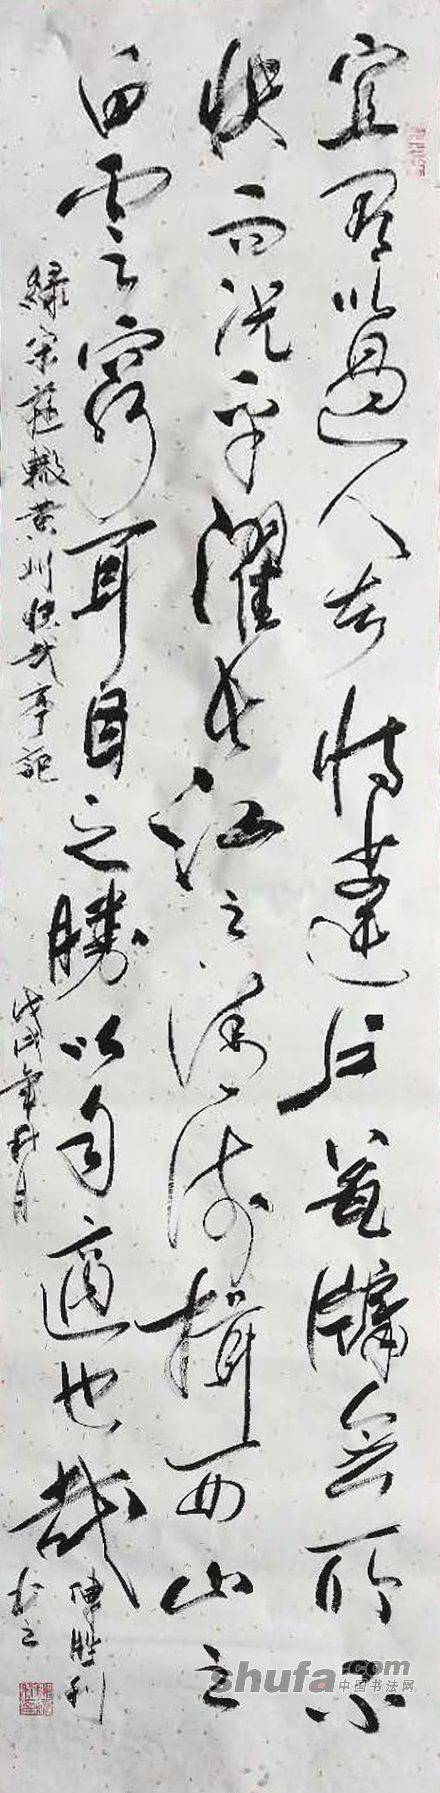 宜有以過人者將蓬戶甕牖無所不
快而況乎濯長江之清流揖西山之
白雲窮耳目之勝以自適也哉
録宋蘇轍黄州快哉亭記
戊戌年秋月
陳胜利
shufa.com
中国书法网